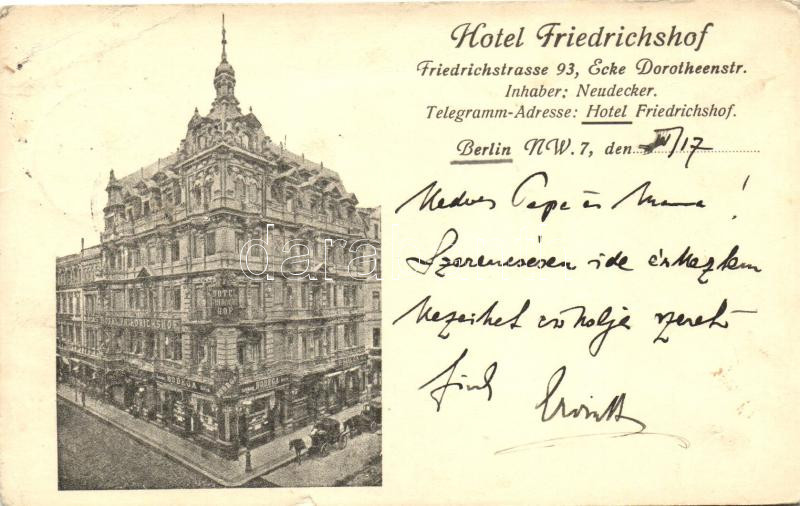 Hotel Friedrichshof
Friedrichstrasse 93, Ecke Dorotheenstr.
Inhaber: Neudecker.
Telegramm-Adresse: Hotel Friedrichshof.
Berlin NW. 7, den /17
Kedves Papa és Mama!
Szerencsésen ide érkeztem
kezeiket csókolja szerető
fiuk
HOTEL FRIEDRICHSHOF
HOTEL
HOF
BODEGA
BODEGA
darabanth